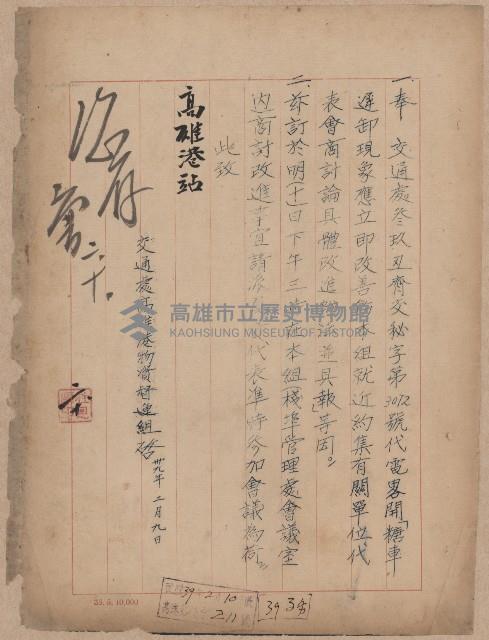 一、奉　交通處叁玖丑齊交秘字第3012號代電畧開「糖車
遲卸現象應立即改善飭本組就近約集有關單位代
表會商討論具體改進辦法並具報」等因。
二、茲訂於明(十)日下午三時在本組(棧埠管理處會議室
內)商討改進事宜請派代表準時參加會議為荷。
此致
高雄港站
交通處高雄港物資督運組啓
卅九年二月九日
存
二、十、
高雄市立歷史博物館
KAOHSIUNG MUSEUM OF HISTORY
39 2 10
211
39 3
39. 5. 10,000